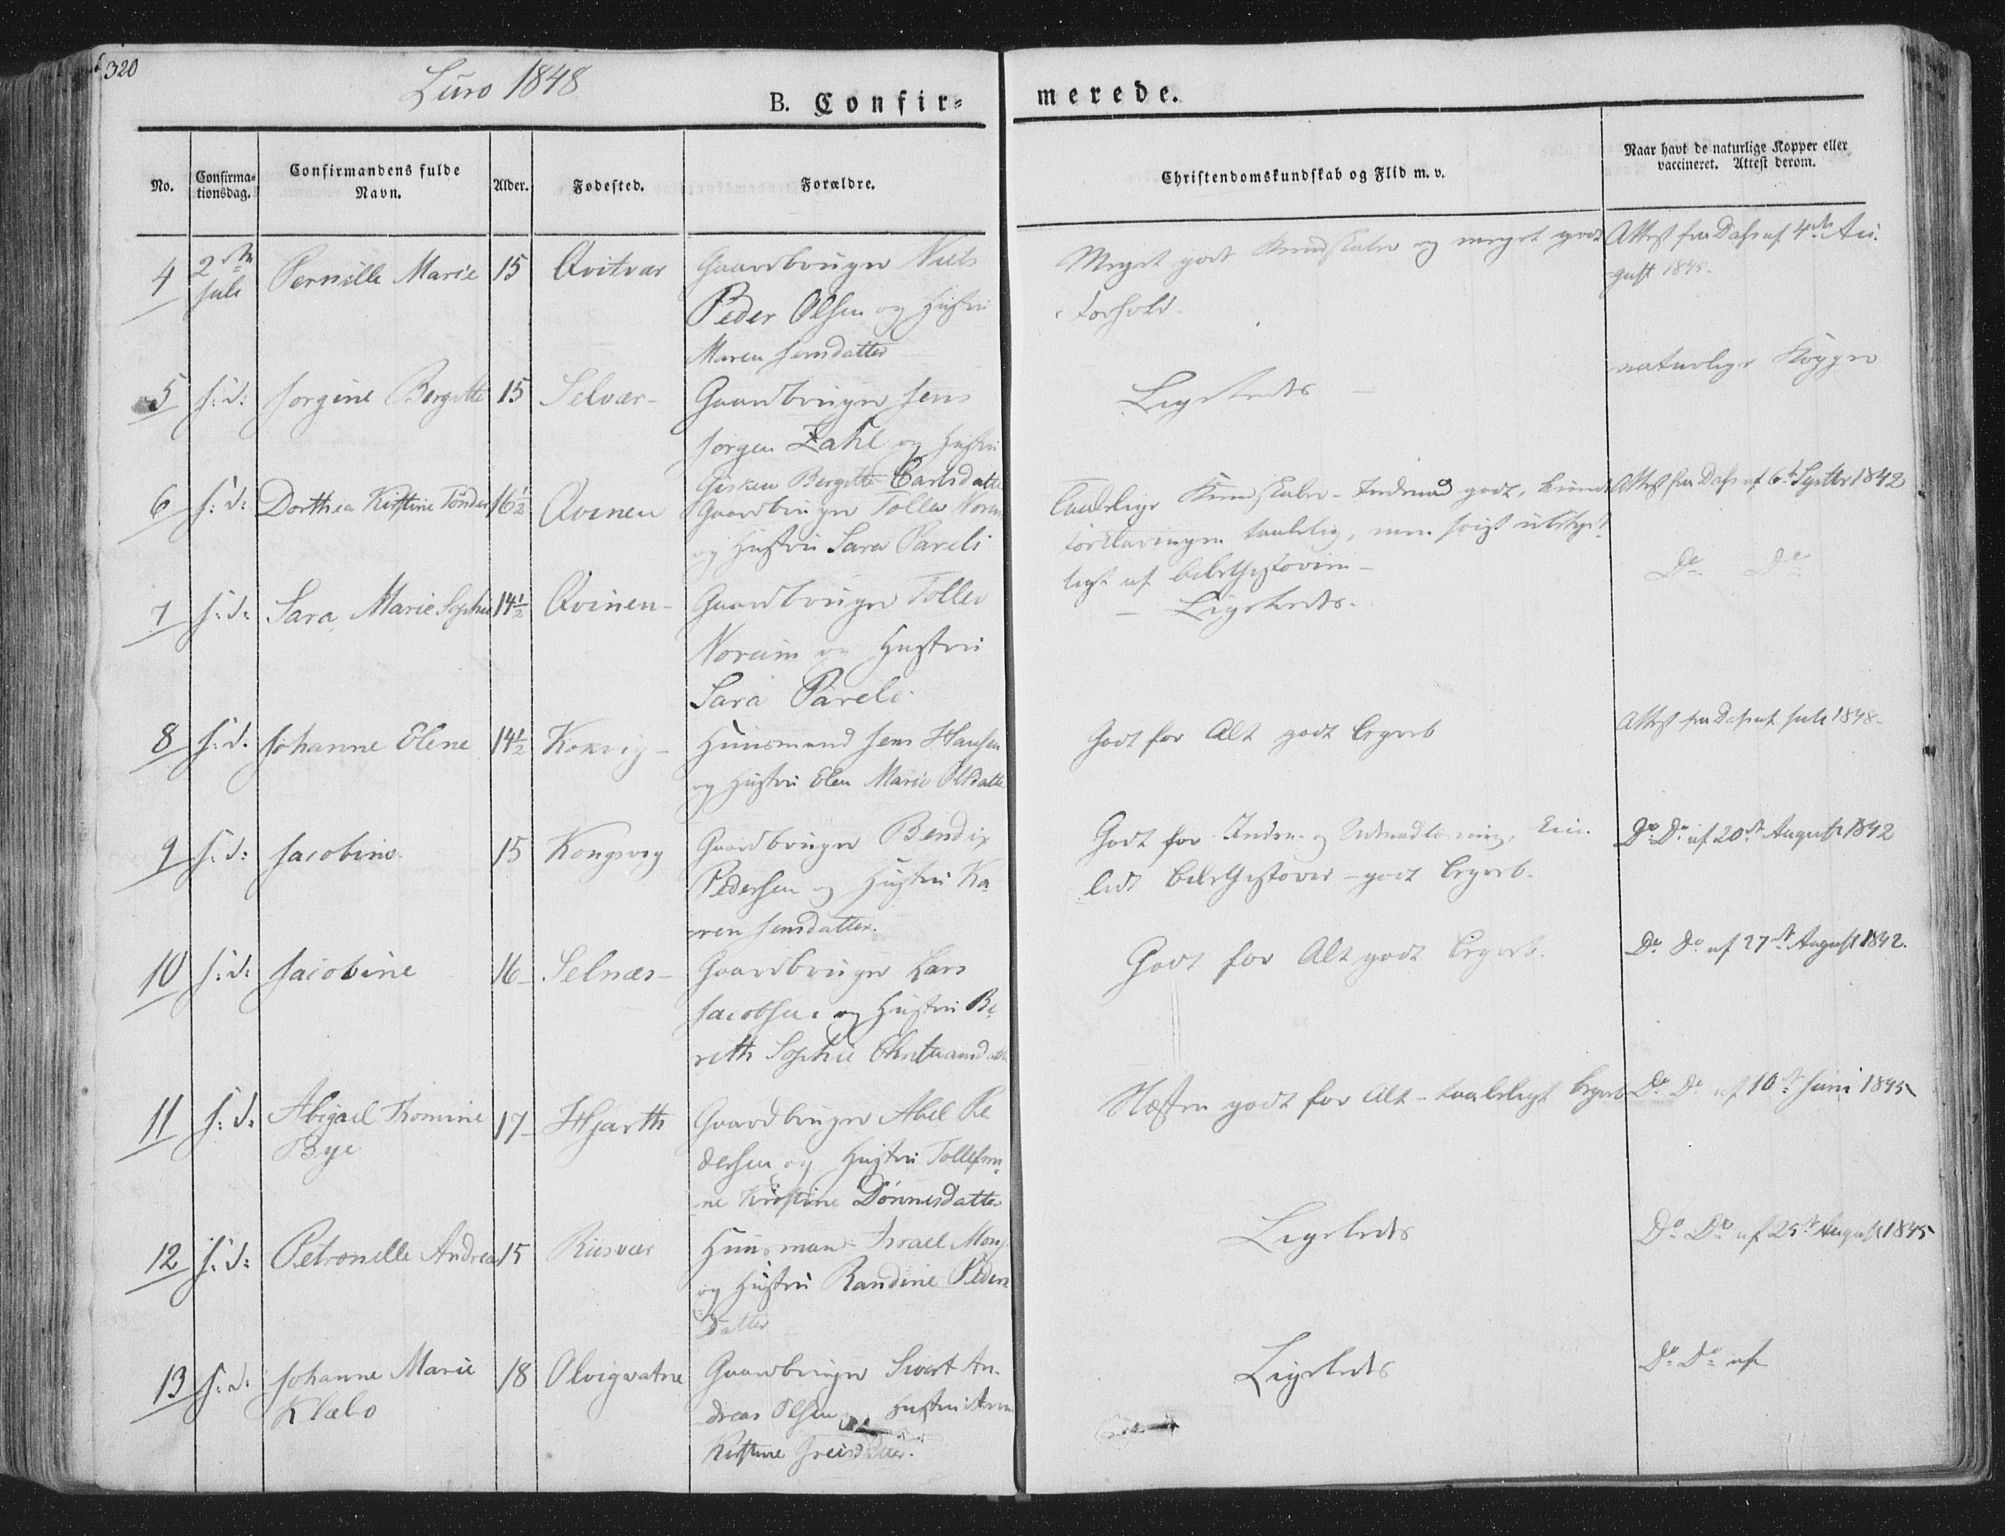 320
Lurö 1848
B. Confir-
merede.
No.
Confirma-
tionsdag.
Confirmandens fulde
Navn.
Alder.
Fødested.
Forældre.
Christendomskundskab og Flid m. v.
Naar havt de naturlige Kopper eller
vaccineret. Attest derom.
4 2den Juli Pernille Marie 15 Qvitvær Gaardbruger Niels
Peder Olsen og Hustru
Maren Jensdatter
Meget godt Kundskaber og meget godt
Forhold.
Attest fra Dass af 4de Au-
gust 1845.
5 s: d: Jorgine Bergitte 15 Selvær- Gaardbruger Jens
Jørgen Zahl og Hustru
Gisken Bergitte Carlsdatter
Ligeledes
naturlige Kopper
6 s: d: Dorthea Kirstine Tönder 16½ Qvinen Gaardbruger Tollev Norum
og Hustru Sara Pareli
Taalelige Kundskaber - Indenad godt,
Forklaringen taalelig, men
af Bibelhistorien -
Attest fra Dass af 6te Septbr 1842
7 s: d: Sara Marie Sophie 14½ Qvinen- Gaardbruger Tollev
Norum og Hustru
Sara Pareli
- Ligeledes.
Do Do
8 s: d. Johanne Elene 14½ Konsvig- Huusmand Jens Hansen
og Hustru Elen Marie Olsdatter
Godt for Alt godt Begreb
Attest fra Dass af Juli 1848-
9 s: d: Jacobine 15 Kongsvig Gaardbruger Bendix
Pedersen og Hustru Ka-
ren Jensdatter.
Godt for Inden- og Udenadlæsning,
Bibelhistorie - godt Begreb.
Do Do af 20de August 1842
10 s: d: Jacobine 16- Selnæs- Gaardbruger Lars
Jacobsen og Hustru Be-
reth Sophie
Godt for Alt godt Begreb.
Do Do af 27de August 1842.
11 s: d. Abigael Thomine
Bye
17- Hjarth Gaardbruger Abel Pe-
dersen og Hustru
ne Kirstine Dönnesdatter
Næsten godt for Alt - taaleligt Begreb
Do Do af 10de Juni 1845
12 s: d: Petronelle Andrea 15 Riisvær Huusmand Israel Mons
og Hustru Randine Peders
datter
Ligeledes
Do Do af 25de August 1845
13 s: d: Johanne Marie
Klæbo
18 Olvigvatne Gaardbruger Sivert An-
dreas Olsen og Hustru
Kirstine
Ligeledes
Do Do af